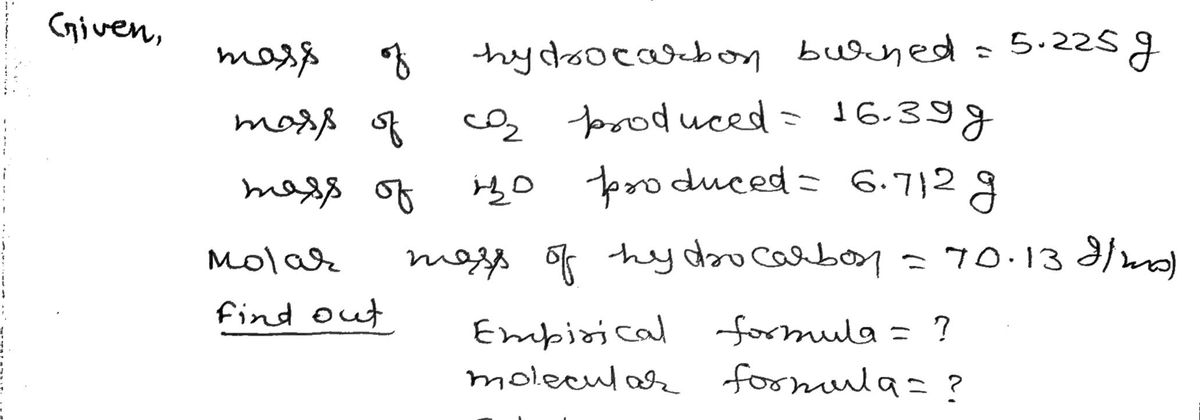 Given,
mass of hydrocarbon burned = 5.225 g
mass of CO2 produced = 16.39 g
mass of H2O produced = 6.712 g
Molar mass of hydrocarbon = 70.13 g/mol
Find out
Empirical formula = ?
molecular formula = ?